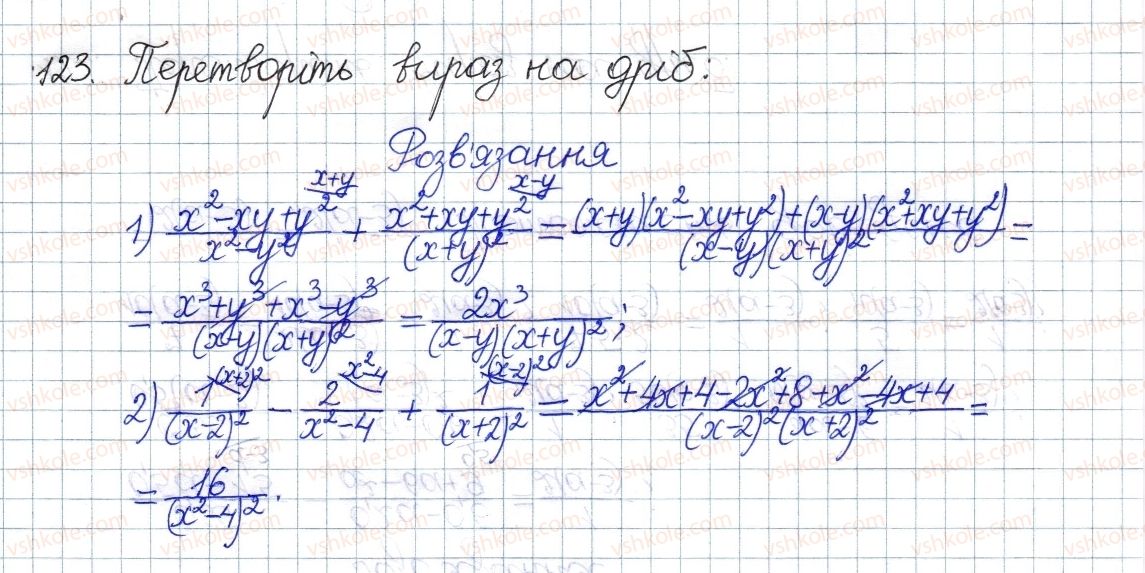 123. Перетворіть вираз на дріб:
Розв'язання
1) (x²-xy+y²)/(x²-y²) ^(x+y) + (x²+xy+y²)/(x+y)² ^(x-y) = ((x+y)(x²-xy+y²)+(x-y)(x²+xy+y²))/((x-y)(x+y)²) =
= (x³+y³+x³-y³)/((x-y)(x+y)²) = 2x³/((x-y)(x+y)²);
2) 1/(x-2)² ^((x+2)²) - 2/(x²-4) ^(x²-4) + 1/(x+2)² ^((x-2)²) = (x²+4x+4-2x²+8+x²-4x+4)/((x-2)²(x+2)²) =
= 16/(x²-4)².
vshkole.com